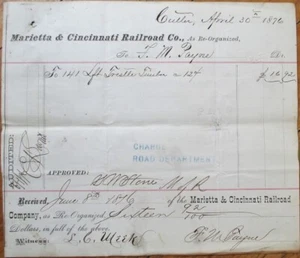 Cutler, April 30th 1876
Marietta & Cincinnati Railroad Co., As Re-Organized,
To T. M. Payne Dr.
To 141 Lft Trestle Timber 12¢ $16.92
AUDITED:
APPROVED:
CHARGE
ROAD DEPARTMENT
Received, June 8th 1876 of the Marietta & Cincinnati Railroad
Company, as Re-Organized Sixteen 92/100
Dollars, in full of the above.
Witness: L. C. Meek T. M. Payne